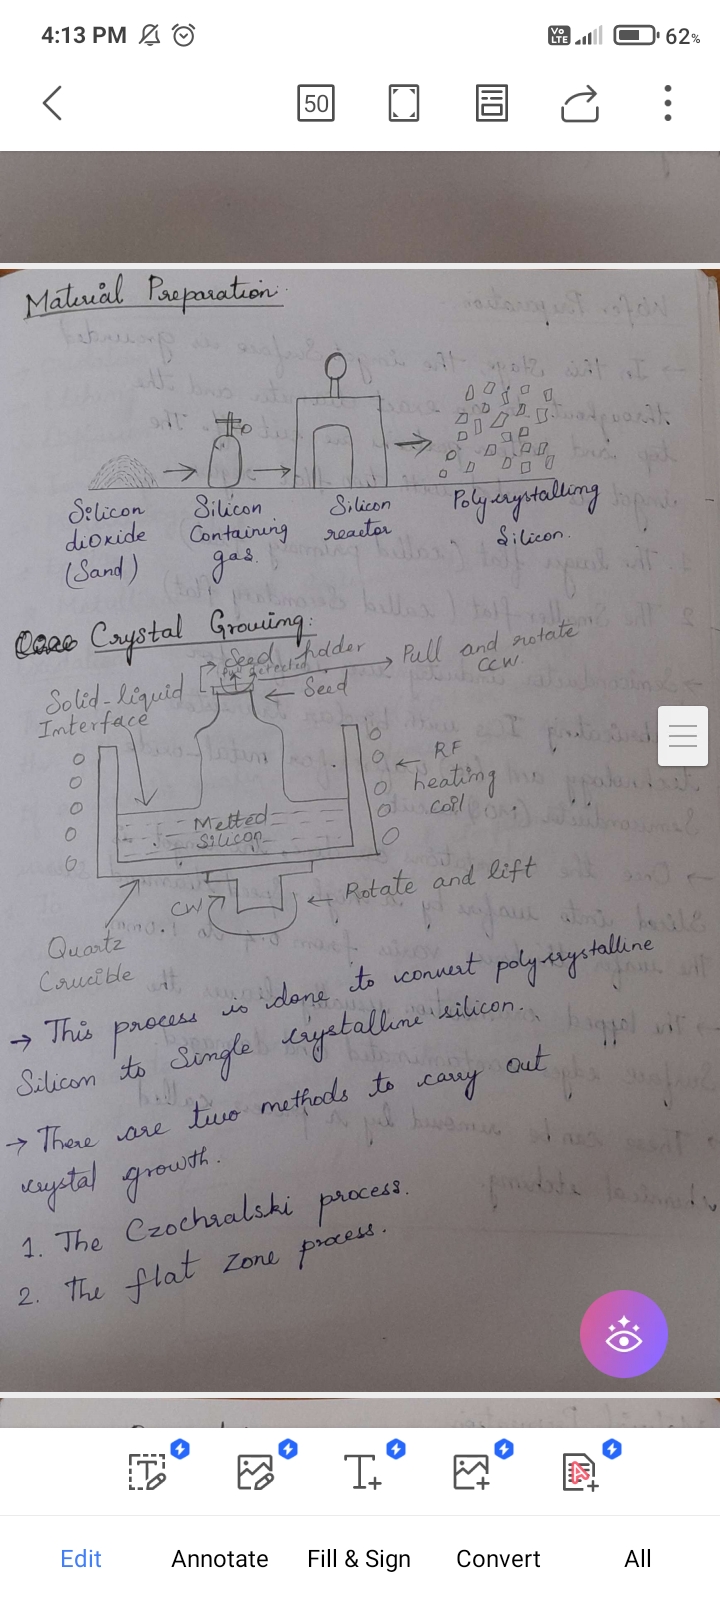 4:13 PM
Vo LTE 62%
50
Material Preparation:
Silicon dioxide (Sand)
Silicon Containing gas.
Silicon reactor
Polycrystalling Silicon.
Crystal Growing:
Seed holder
Pull and rotate CCW.
Solid-liquid Interface
Seed
RF heating coil
Melted Silicon
CW
Rotate and lift
Quartz Crucible
→ This process is done to convert polycrystalline
Silicon to Single crystalline silicon.
→ There are two methods to carry out
crystal growth.
1. The Czochralski process.
2. The flat zone process.
Edit Annotate Fill & Sign Convert All